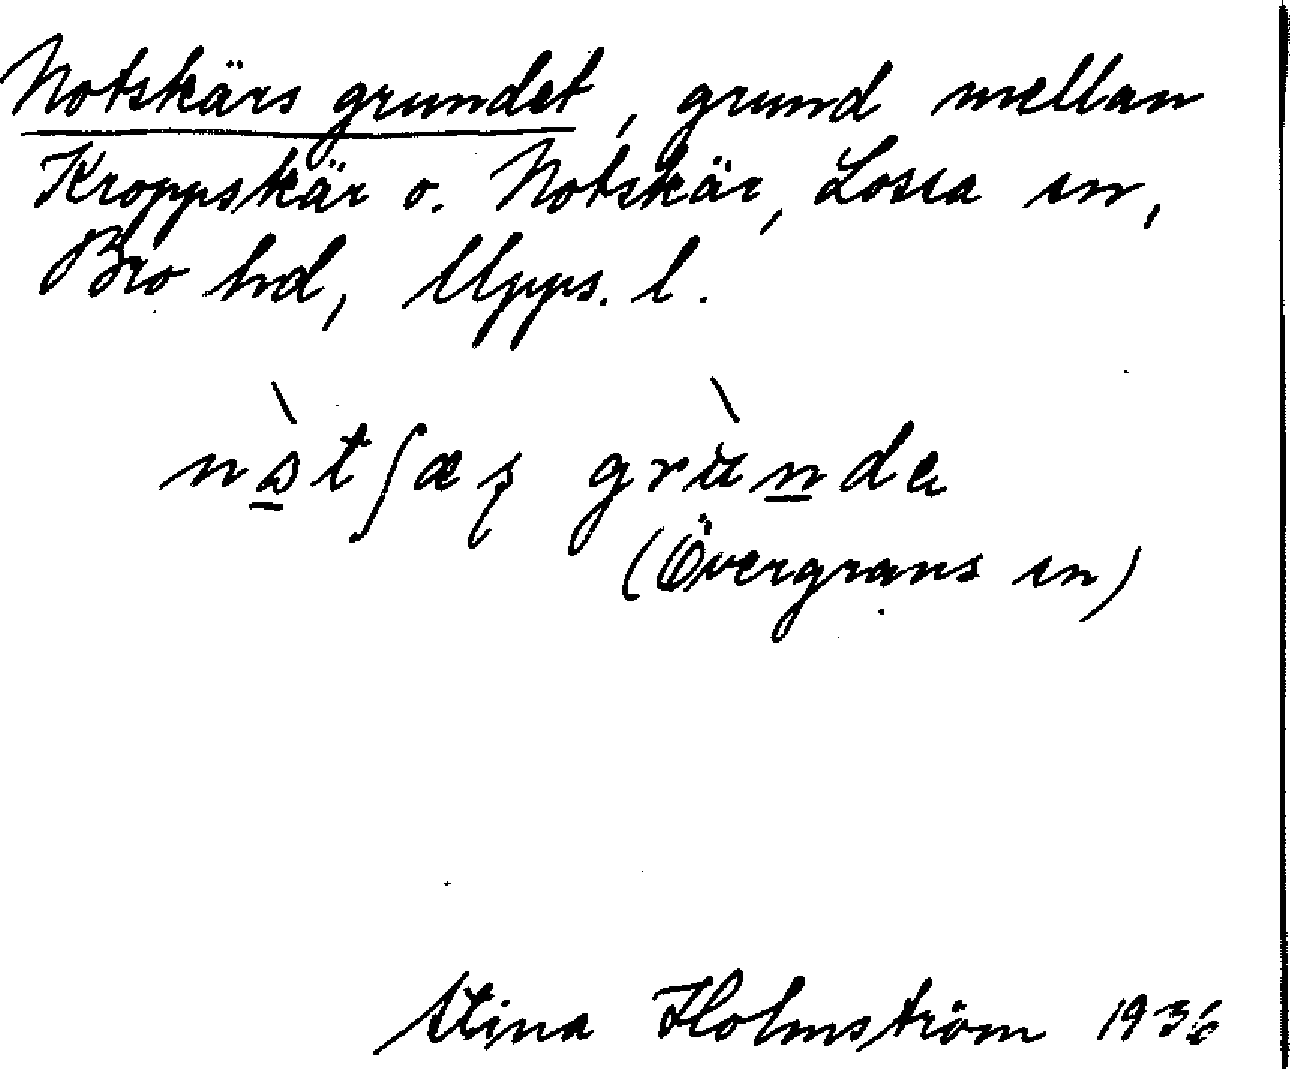 Notskärs grundet, grund mellan
Kroppskär o. Notskär, Lossa sn,
Bro hd, Upps. l.
grùnde
(Övergrans sn)
Stina Holmström 1936